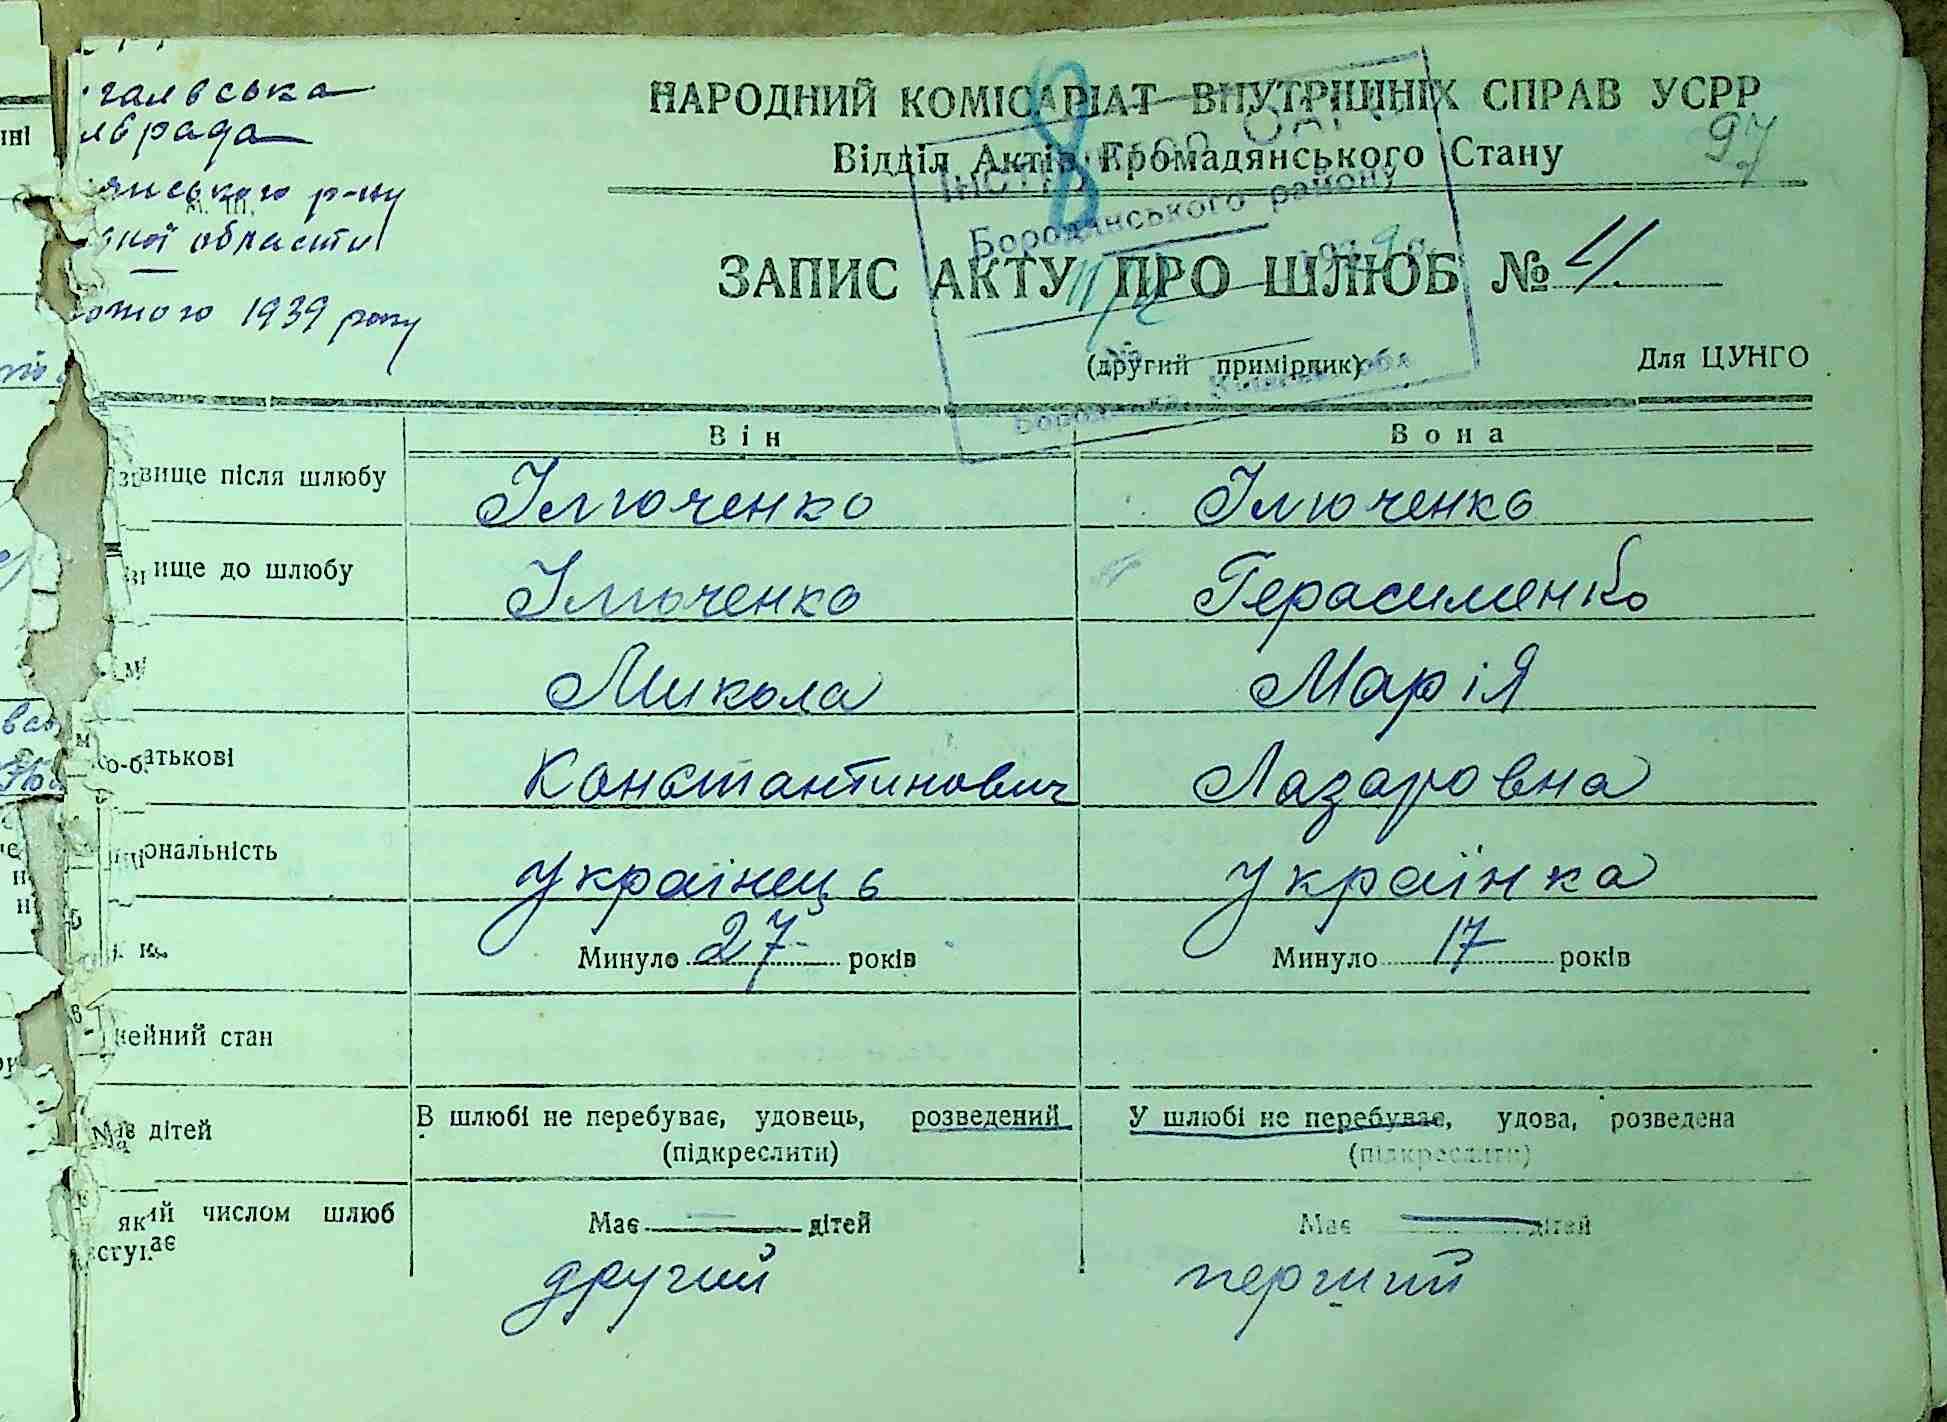 галвська
рада
р-ну
області
1939 року
НАРОДНИЙ КОМІСАРІАТ ВНУТРІШНІХ СПРАВ УСРР
97
Відділ Актів Громадянського Стану
8
Бородянського району
ЗАПИС АКТУ ПРО ШЛЮБ № 4
(другий примірник) Для ЦУНГО
Бородянка, Київськ. обл.
Він Вона
звище після шлюбу Ілюченко Ілюченко
ище до шлюбу Ілюченко Герасименко
Микола Марія
атькові Константинович Лазаровна
ональність Українець Українка
Минуло 27 років Минуло 17 років
нейний стан
Має дітей В шлюбі не перебуває, удовець, розведений У шлюбі не перебуває, удова, розведена
(підкреслити) (підкреслити)
який числом шлюб Має дітей Має дітей
другий перший